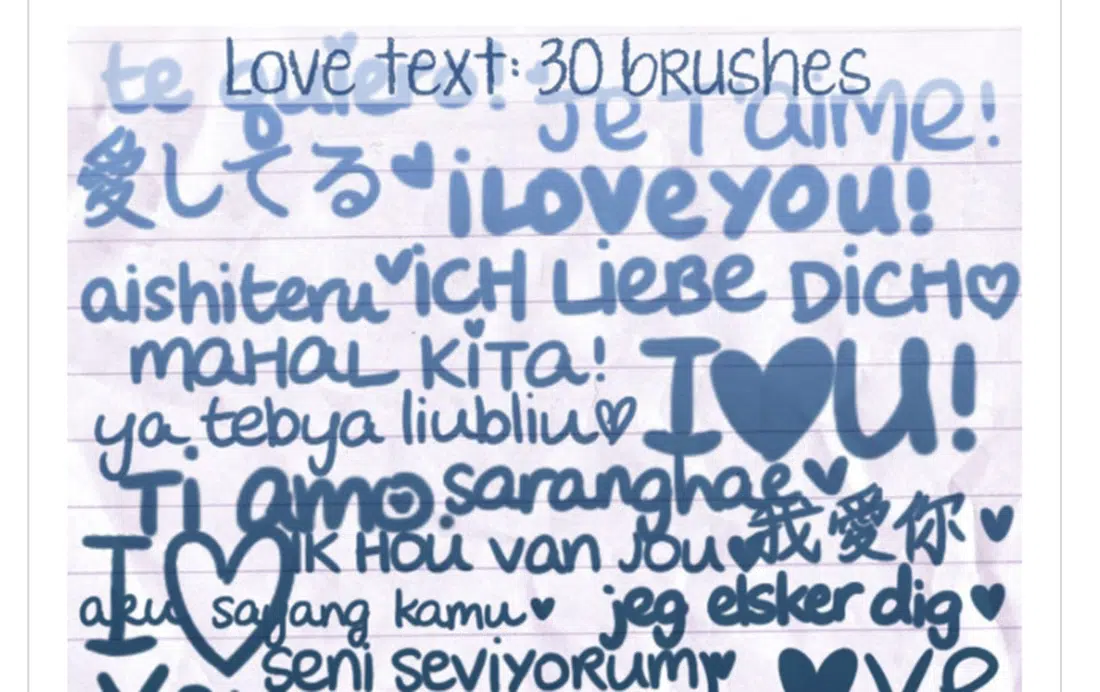 Love text: 30 brushes
te quiero!
Je t'aime!
愛してる
i love you!
aishiteru
ICH LieBe DiCH
MaHaL KiTa!
I ♥ U!
ya tebya liubliu
Ti amo
saranghae
我愛你
IK HOU van jou
I ♡
aku sayang kamu
jeg elsker dig
seni seviyorum